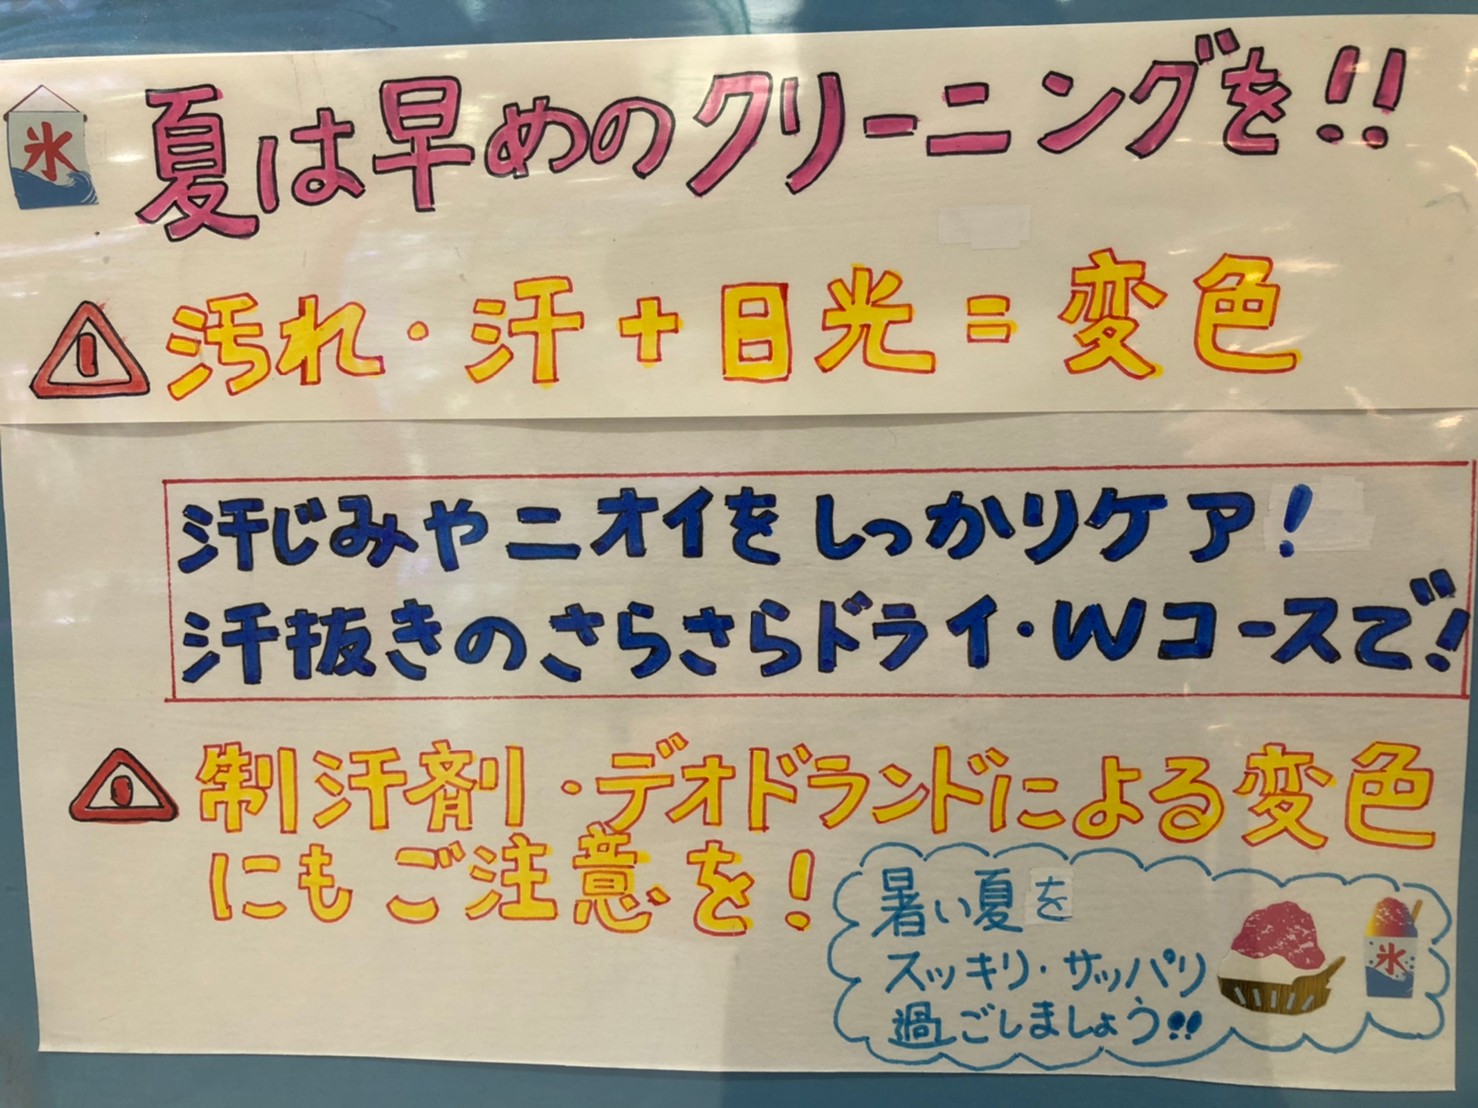 氷
夏は早めのクリーニングを!!
汚れ・汗+日光=変色
汗じみやニオイをしっかりケア!
汗抜きのさらさらドライ・Wコースで!
制汗剤・デオドランドによる変色
にもご注意を!
暑い夏を
スッキリ・サッパリ
過ごしましょう!!
氷